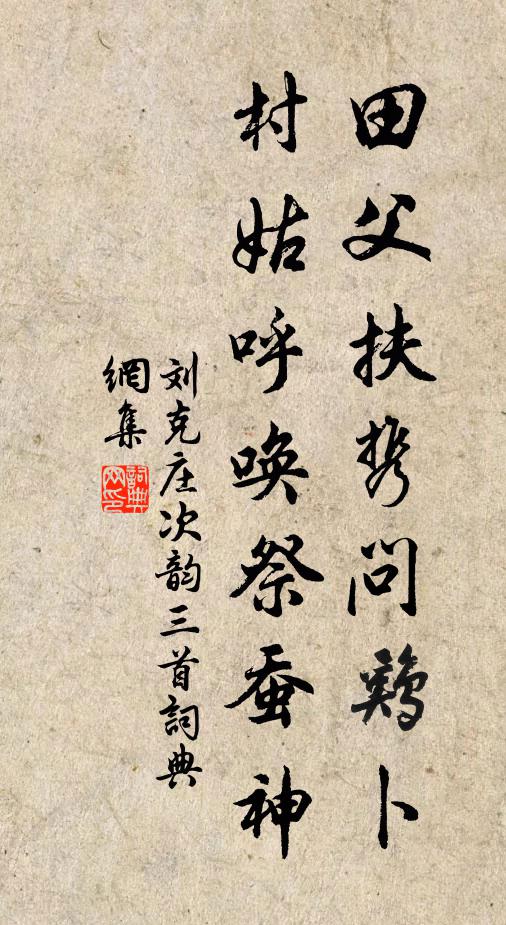 田父扶携问鷄卜
村姑呼唤祭蚕神
刘克庄次韵三首詞典
網集
詞典網印